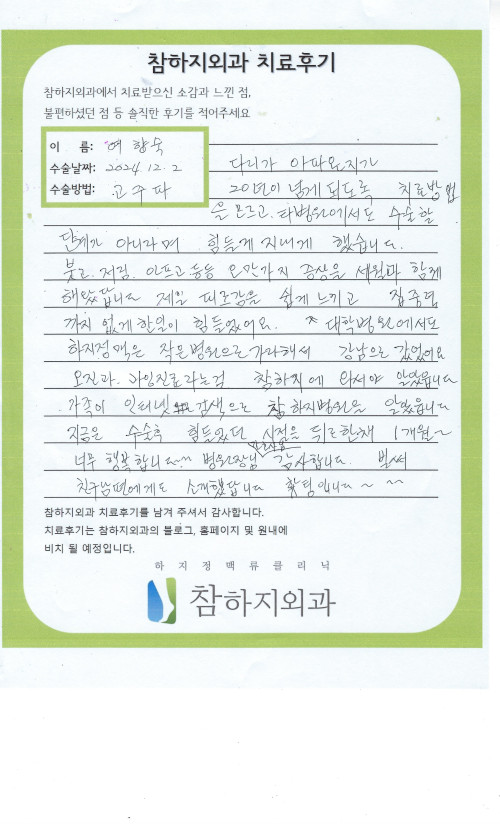 참하지외과 치료후기
참하지외과에서 치료받으신 소감과 느낀 점,
불편하셨던 점 등 솔직한 후기를 적어주세요
이 름: 여 향숙
수술날짜: 2024. 12. 2
수술방법: 고주파
다리가 아파온지가
20년이 넘게 되도록 치료방법
을 모르고. 타병원에서도 수술할
단계가 아니라며 힘들게 지내게 했습니다.
붓고. 저림. 아프고 등등 오만가지 증상을 세월과 함께
해왔답니다 제일 피로감을 쉽게 느끼고 집중력
까지 없게 한일이 힘들었어요. * 대학병원에서도
하지정맥은 작은병원으로 가라해서 강남으로 갔었어요
오진과. 과잉진료라는걸 참하지에 와서야 알았읍니다
가족이 인터넷 검색으로 참하지병원을 알았읍니다
지금은 수술후 힘들었던 시절을 뒤로한채 1개월~
너무 행복합니다~~ 병원장님 감사합니다. 벌써
친구남편에게도 소개했답니다 홧팅입니다 ~ ~
참하지외과 치료후기를 남겨 주셔서 감사합니다.
치료후기는 참하지외과의 블로그, 홈페이지 및 원내에
비치 될 예정입니다.
하지정맥류클리닉
참하지외과